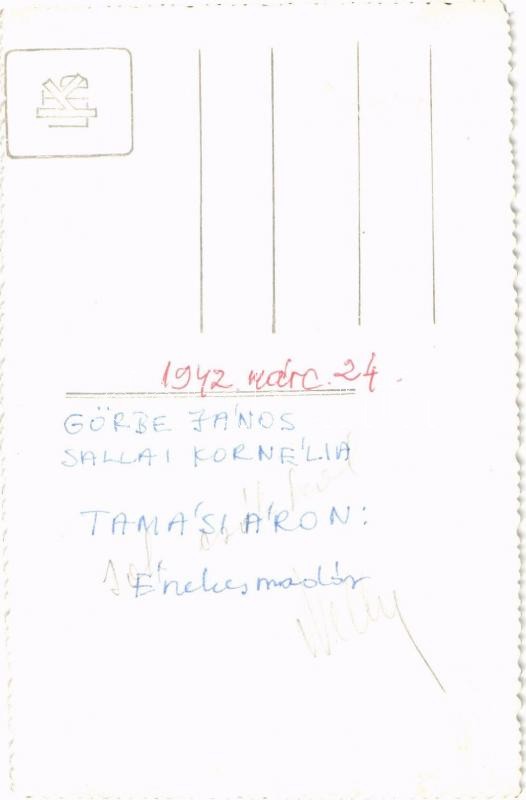 1942 márc. 24.
GÖRBE JÁNOS
SALLAI KORNÉLIA
TAMÁSI ÁRON:
Énekesmadár